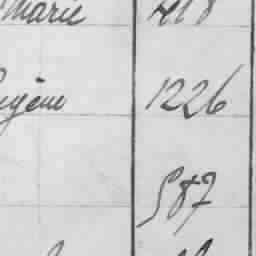 Marie
Eugène 1226
587